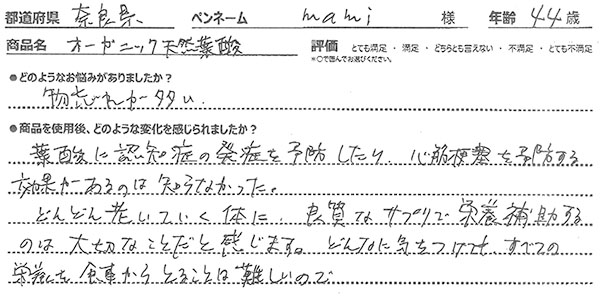 都道府県 奈良県 ペンネーム mami 様 年齢 44 歳
商品名 オーガニック天然葉酸 評価 とても満足 ・ 満足 ・ どちらとも言えない ・ 不満足 ・ とても不満足
*○で囲んでお選びください。
●どのようなお悩みがありましたか?
物忘れが多い。
●商品を使用後、どのような変化を感じられましたか?
葉酸に認知症の発症を予防したり、心筋梗塞を予防する
効果があるのは知らなかった。
どんどん老いていく体に、良質なサプリで栄養補助する
のは大切なことだと感じます。どんなに気をつけても、すべての
栄養を食事からとることは難しいので